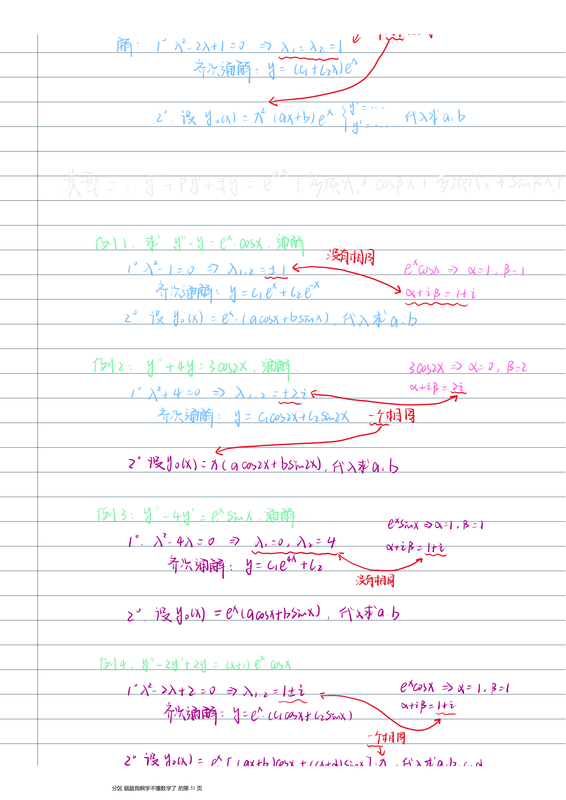 解: 1° λ²-2λ+1=0 ⇒ λ₁=λ₂=1
齐次通解: y=(C₁+C₂x)eˣ
2°. 设 y₀(x)=x²(ax+b)eˣ { y'=… y''=… 代入求a.b
类型二、y''+py'+qy=e^{αx}[多项式₁·cosβx+多项式₂·sinβx]
例1. 求 y''-y=eˣ·cosx. 通解
没有相同
1° λ²-1=0 ⇒ λ₁,₂=±1
eˣcosx ⇒ α=1, β=1
齐次通解: y=C₁eˣ+C₂e⁻ˣ
α+iβ=1+i
2° 设 y₀(x)=eˣ·(acosx+bsinx), 代入求a.b
例2: y''+4y=3cos2x, 通解.
3cos2x ⇒ α=0, β=2
1° λ²+4=0 ⇒ λ₁,₂=±2i
α+iβ=2i
齐次通解: y=C₁cos2x+C₂sin2x
一个相同
2° 设y₀(x)=x(acos2x+bsin2x), 代入求a.b
例3: y''-4y'=eˣsinx. 通解
eˣsinx ⇒ α=1, β=1
1°. λ²-4λ=0 ⇒ λ₁=0, λ₂=4
α+iβ=1+i
齐次通解: y=C₁e⁴ˣ+C₂
没有相同
2°. 设y₀(x)=eˣ(acosx+bsinx), 代入求a.b
例4. y''-2y'+2y=(x+1)eˣcosx
1° λ²-2λ+2=0 ⇒ λ₁,₂=1±i
eˣcosx ⇒ α=1, β=1
齐次通解: y=eˣ·(C₁cosx+C₂sinx)
α+iβ=1+i
一个相同
2° 设y₀(x)=eˣ[(ax+b)cosx+(cx+d)sinx]·x, 代入求a.b.c.d
分区 鼠鼠我啊学不懂数学了 的第 51 页